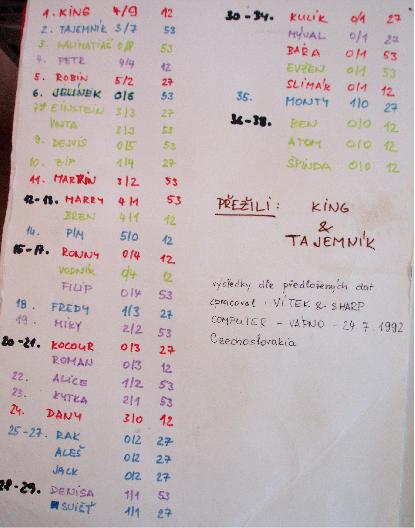 1. KING 4/9 12
2. TAJEMNÍK 3/7 53
3. 0/8 53
4. PETR 4/4 12
5. ROBIN 5/2 27
6. JELÍNEK 0/6 53
EINSTEIN 3/3 27
VNTA 3/3 53
9. DEJVIS 0/5 53
10. ZIP 1/4 27
11. MARTIN 3/2 53
12-13. MARRY 4/1 53
BREN 4/1 12
14. PIM 5/0 12
15-17. RONNY 0/4 12
VODNÍK 0/4 12
FILIP 0/4 53
18. FREDY 1/3 27
19. MIKY 2/2 53
20-21. KOCOUR 0/3 27
ROMAN 0/3 12
22. ALICE 1/2 53
23. KYTKA 2/1 53
24. DANY 3/0 12
25-27. RAK 0/2 27
ALEŠ 0/2 27
JACK 0/2 27
28-29. DENISA 1/1 53
SVIŠŤ 1/1 27
30-34. KULÍK 0/1 27
MÝVAL 0/1 27
BÁRA 0/1 53
EVŽEN 0/1 53
SLIMÁK 0/1 12
35. MONTY 1/0 27
36-38. BEN 0/0 12
ATOM 0/0 12
ŠPINDA 0/0 12
PŘEŽILI: KING
&
TAJEMNÍK
výsledky dle předložených dat
zpracoval: VÍTEK & SHARP
COMPUTER - VÁPNO - 24.7.1992
Czechoslovakia